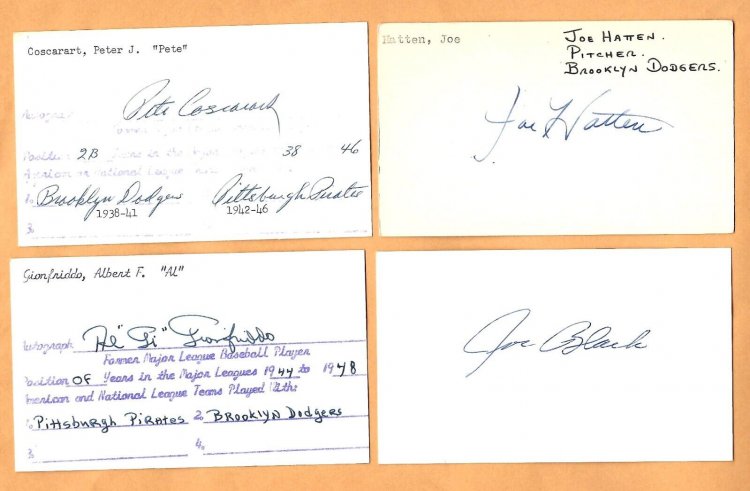 Coscarart, Peter J. "Pete"
Autograph Pete Coscarart
Former
Position 2B Years in the Major 38 46
American or National League
Brooklyn Dodgers Pittsburgh Pirates
1938-41 1942-46
3.
Hatten, Joe
Joe Hatten.
Pitcher.
Brooklyn Dodgers.
Joe Hatten
Gionfriddo, Albert F. "Al"
Autograph Al "Gi" Gionfriddo
Former Major League Baseball Player
Position OF Years in the Major Leagues 1944 to 1948
American and National League Teams Played With:
Pittsburgh Pirates 2. Brooklyn Dodgers
3. 4.
Joe Black